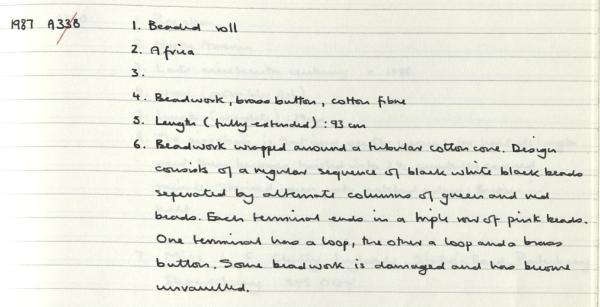 1987 A338 1. Beaded roll
2. Africa
3.
4. Beadwork, brass button, cotton fibre
5. Length (fully extended): 93 cm
6. Beadwork wrapped around a tubular cotton core. Design
consists of a regular sequence of black white black beads
seperated by alternate columns of green and red
beads. Each terminal ends in a triple row of pink beads.
One terminal has a loop, the other a loop and a brass
button. Some beadwork is damaged and has become
unravelled.